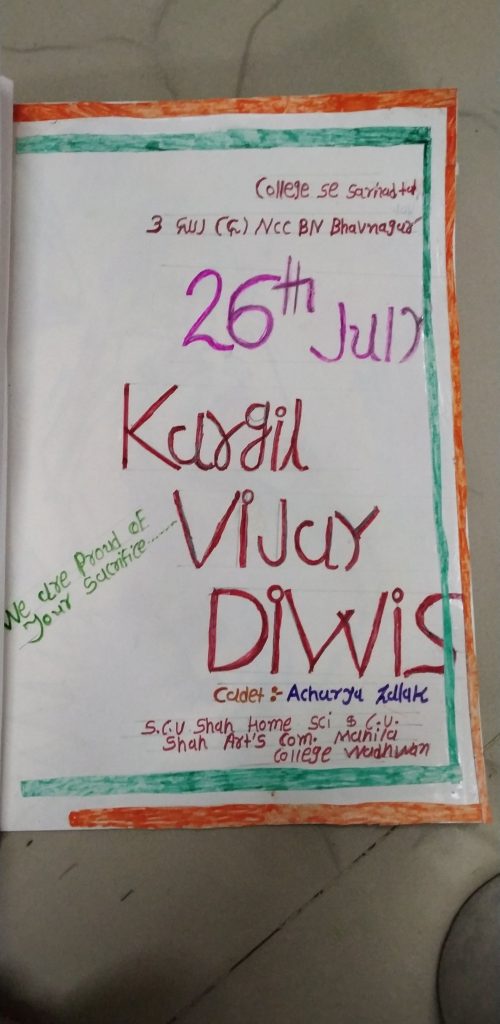 College se sarhad tak
3 ગુજ (ઘ) NCC BN Bhavnagar
26th July
Kargil
Vijay
Diwis
We are Proud of
Your Sacrifice......
Cadet :- Acharya
S.C.U Shah Home Sci & C.U.
Shah Art's Com. Mahila
College Wadhwan